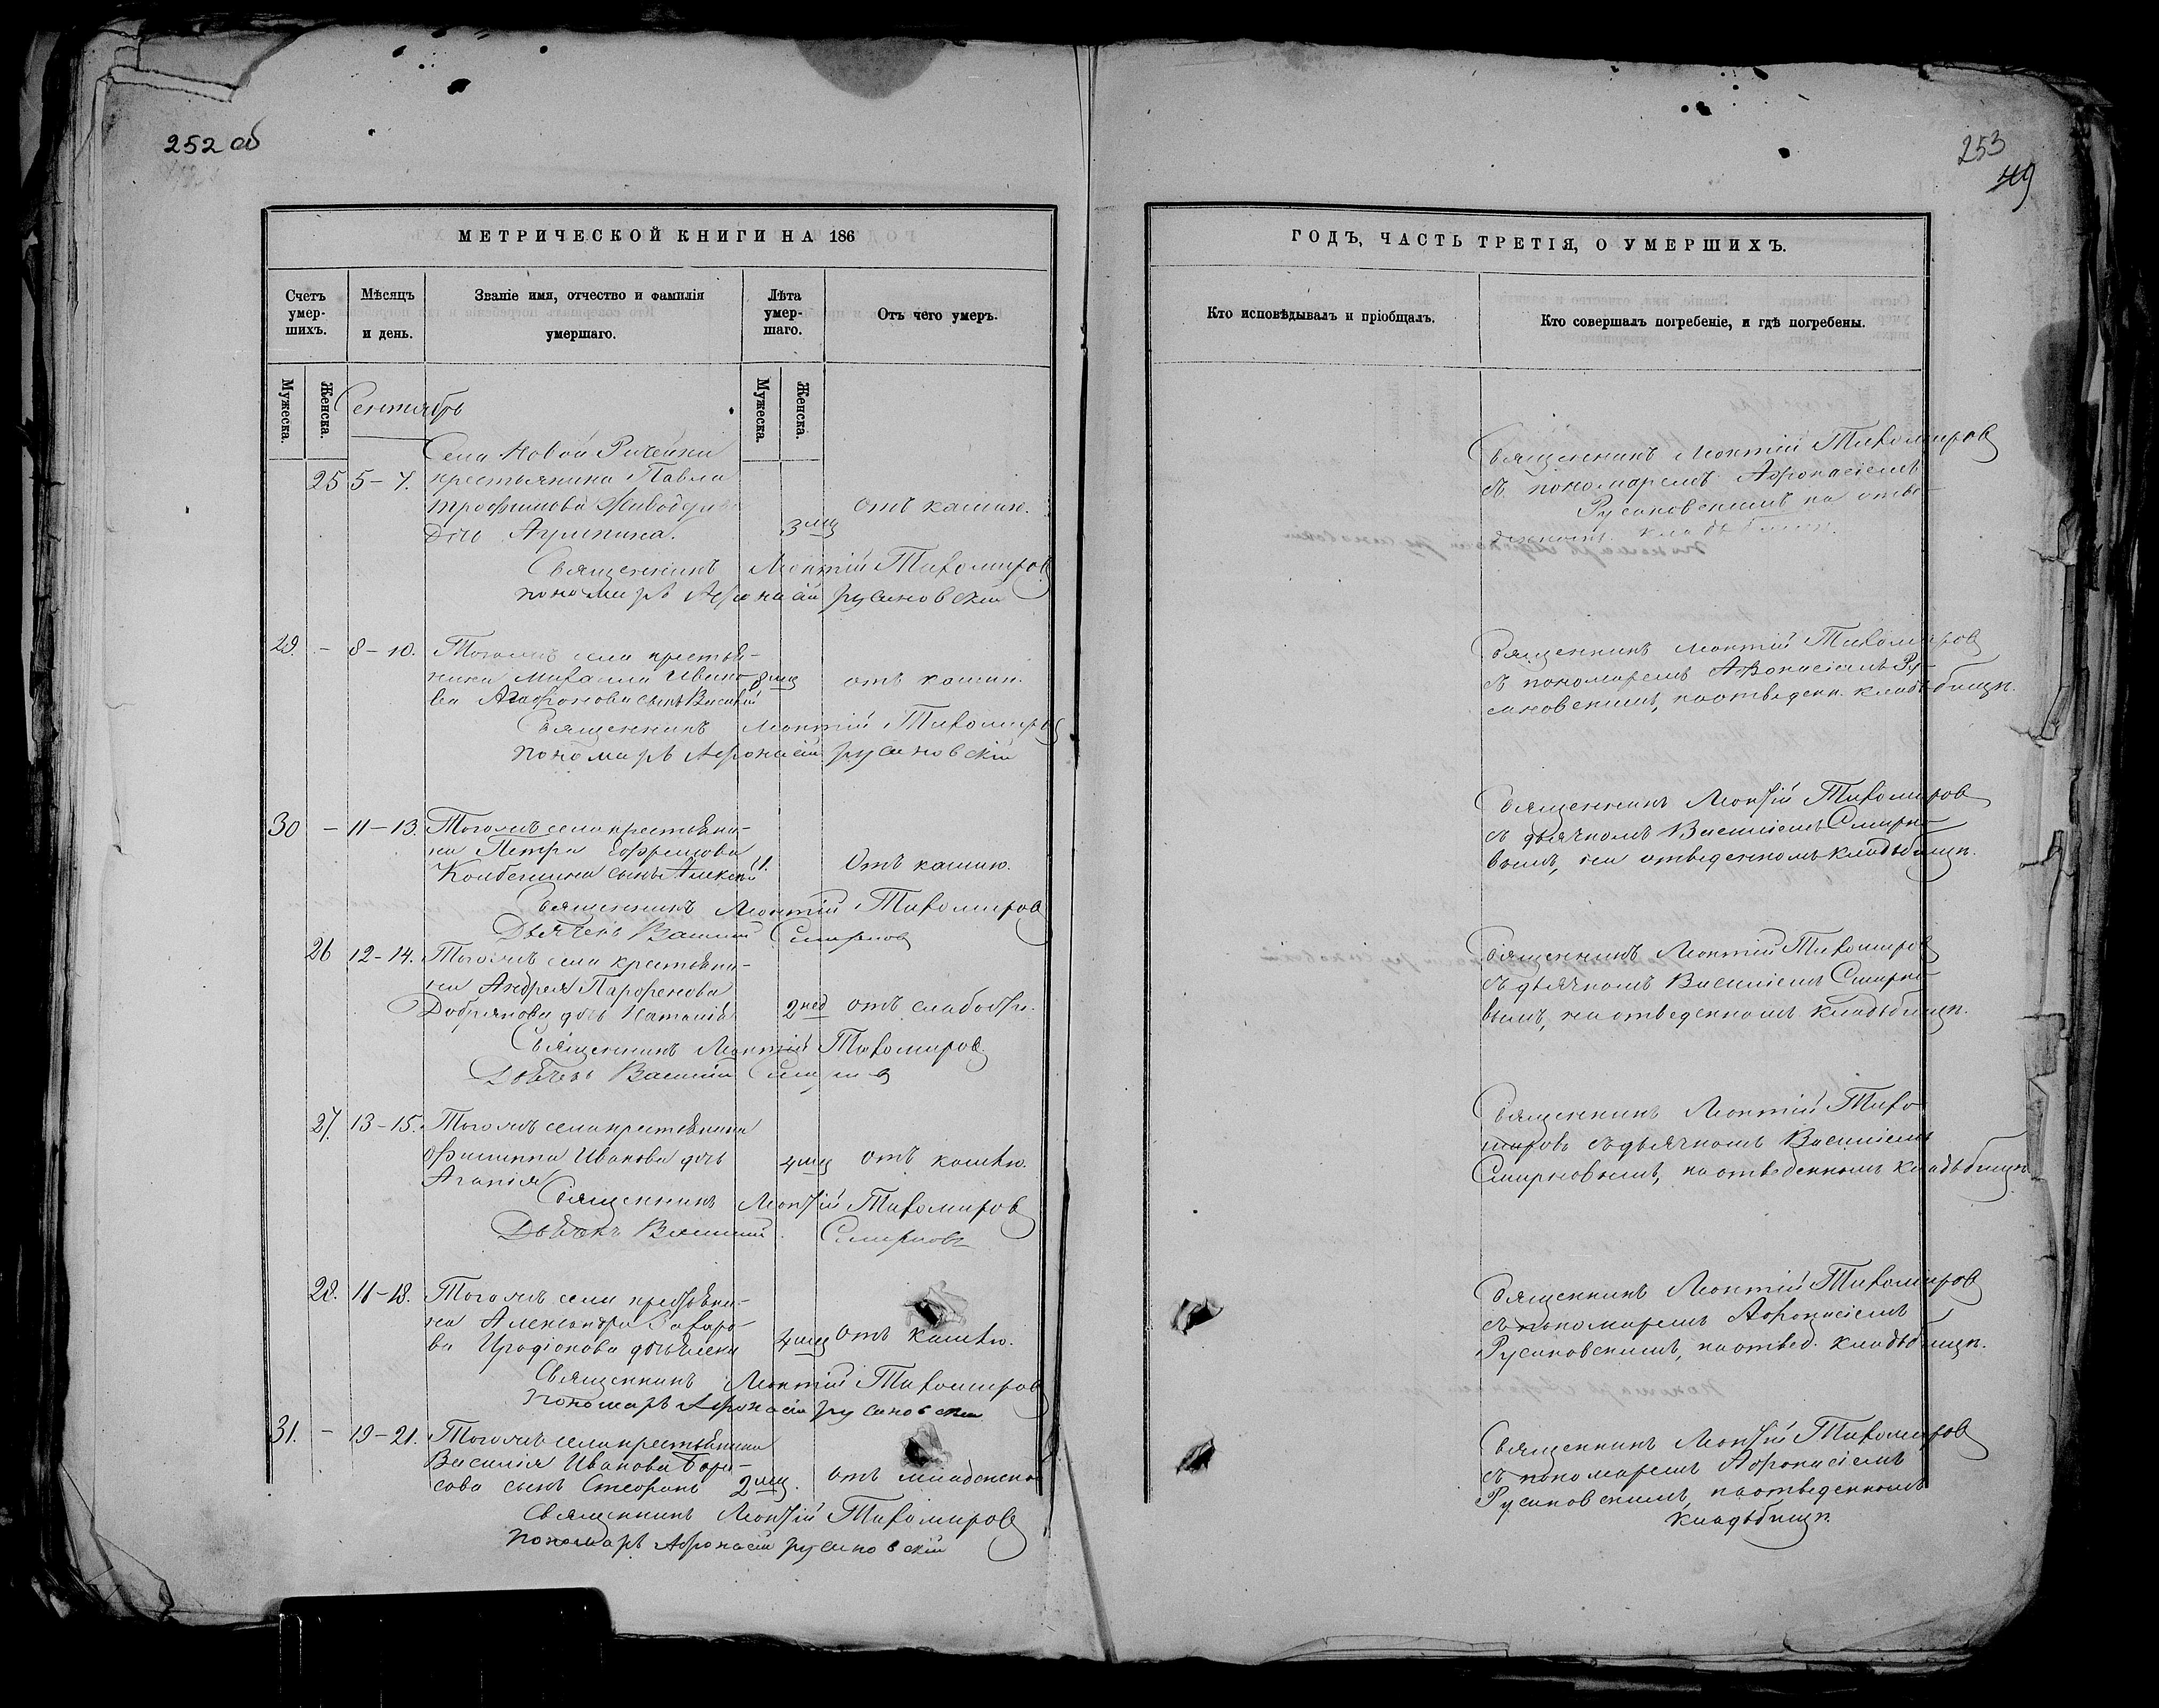 252 об
МЕТРИЧЕСКОЙ КНИГИ НА 186
Счетъ умер-шихъ.
Мѣсяцъ и день.
Званіе имя, отчество и фамилія умершаго.
Лѣта умер-шаго.
Отъ чего умеръ.
Мужеска.
Женска.
Мужеска.
Женска.
Сентябрь
Села Новой
25 5-7. крестьянина Павла
Трофимова
дочь Акулина. 3 мц отъ кашлю.
Священникъ Леонтій Тихомировъ
пономарь Афонасій Русановскій
29. - 8-10. Тогожъ села крестья-
нина Михаила Ивано- 8 мц отъ кашлю.
ва Агафонова сынъ Василій
Священникъ Леонтій Тихомировъ
пономарь Афонасій Русановскій
30 - 11-13. Тогожъ села крестьяни-
на Петра Ефремова
сынъ Алексѣй 1. Отъ кашлю.
Священникъ Леонтій Тихомировъ
Дьячекъ Василій Смирновъ
26 12-14. Тогожъ села крестьяни-
на Андрея Парфенова
дочь Наталія 2 нед отъ слабости.
Священникъ Леонтій Тихомировъ
Дьячекъ Василій Смирновъ
27. 13-15. Тогожъ села крестьянина
Филиппа Иванова дочь 4 мц отъ кашлю.
Агапія
Священникъ Леонтій Тихомировъ
Дьячекъ Василій Смирновъ
28. 11-18. Тогожъ села крестьяни-
на Александра Захаро-
ва Иродіонова дочь 4 мц отъ кашлю.
Священникъ Леонтій Тихомировъ
пономарь Афонасій Русановскій
31. - 19-21. Тогожъ села крестьянина
Василія Иванова Бори-
сова сынъ Стефанъ 2 мц. отъ младенской
Священникъ Леонтій Тихомировъ
пономарь Афонасій Русановскій
253
49
ГОДЪ, ЧАСТЬ ТРЕТІЯ, О УМЕРШИХЪ.
Кто исповѣдывалъ и пріобщалъ.
Кто совершалъ погребеніе, и гдѣ погребены.
Священникъ Леонтій Тихомировъ
съ пономаремъ Афонасіемъ
Русановскимъ на отве-
денномъ кладбищѣ.
Священникъ Леонтій Тихомировъ
съ пономаремъ Афонасіемъ Ру-
сановскимъ, на отведенн. кладьбищѣ.
Священникъ Леонтій Тихомировъ
съ дьячкомъ Василіемъ Смирно-
вымъ, на отведенномъ кладьбищѣ.
Священникъ Леонтій Тихомировъ
съ дьячкомъ Василіемъ Смирно-
вымъ, на отведенномъ кладьбищѣ.
Священникъ Леонтій Тихо-
мировъ съ дьячкомъ Василіемъ
Смирновымъ, на отведенномъ кладьбищѣ
Священникъ Леонтій Тихомировъ
съ пономаремъ Афонасіемъ
Русановскимъ, на отвед. кладьбищѣ.
Священникъ Леонтій Тихомировъ
съ пономаремъ Афонасіемъ
Русановскимъ, на отведенномъ
кладьбищѣ.